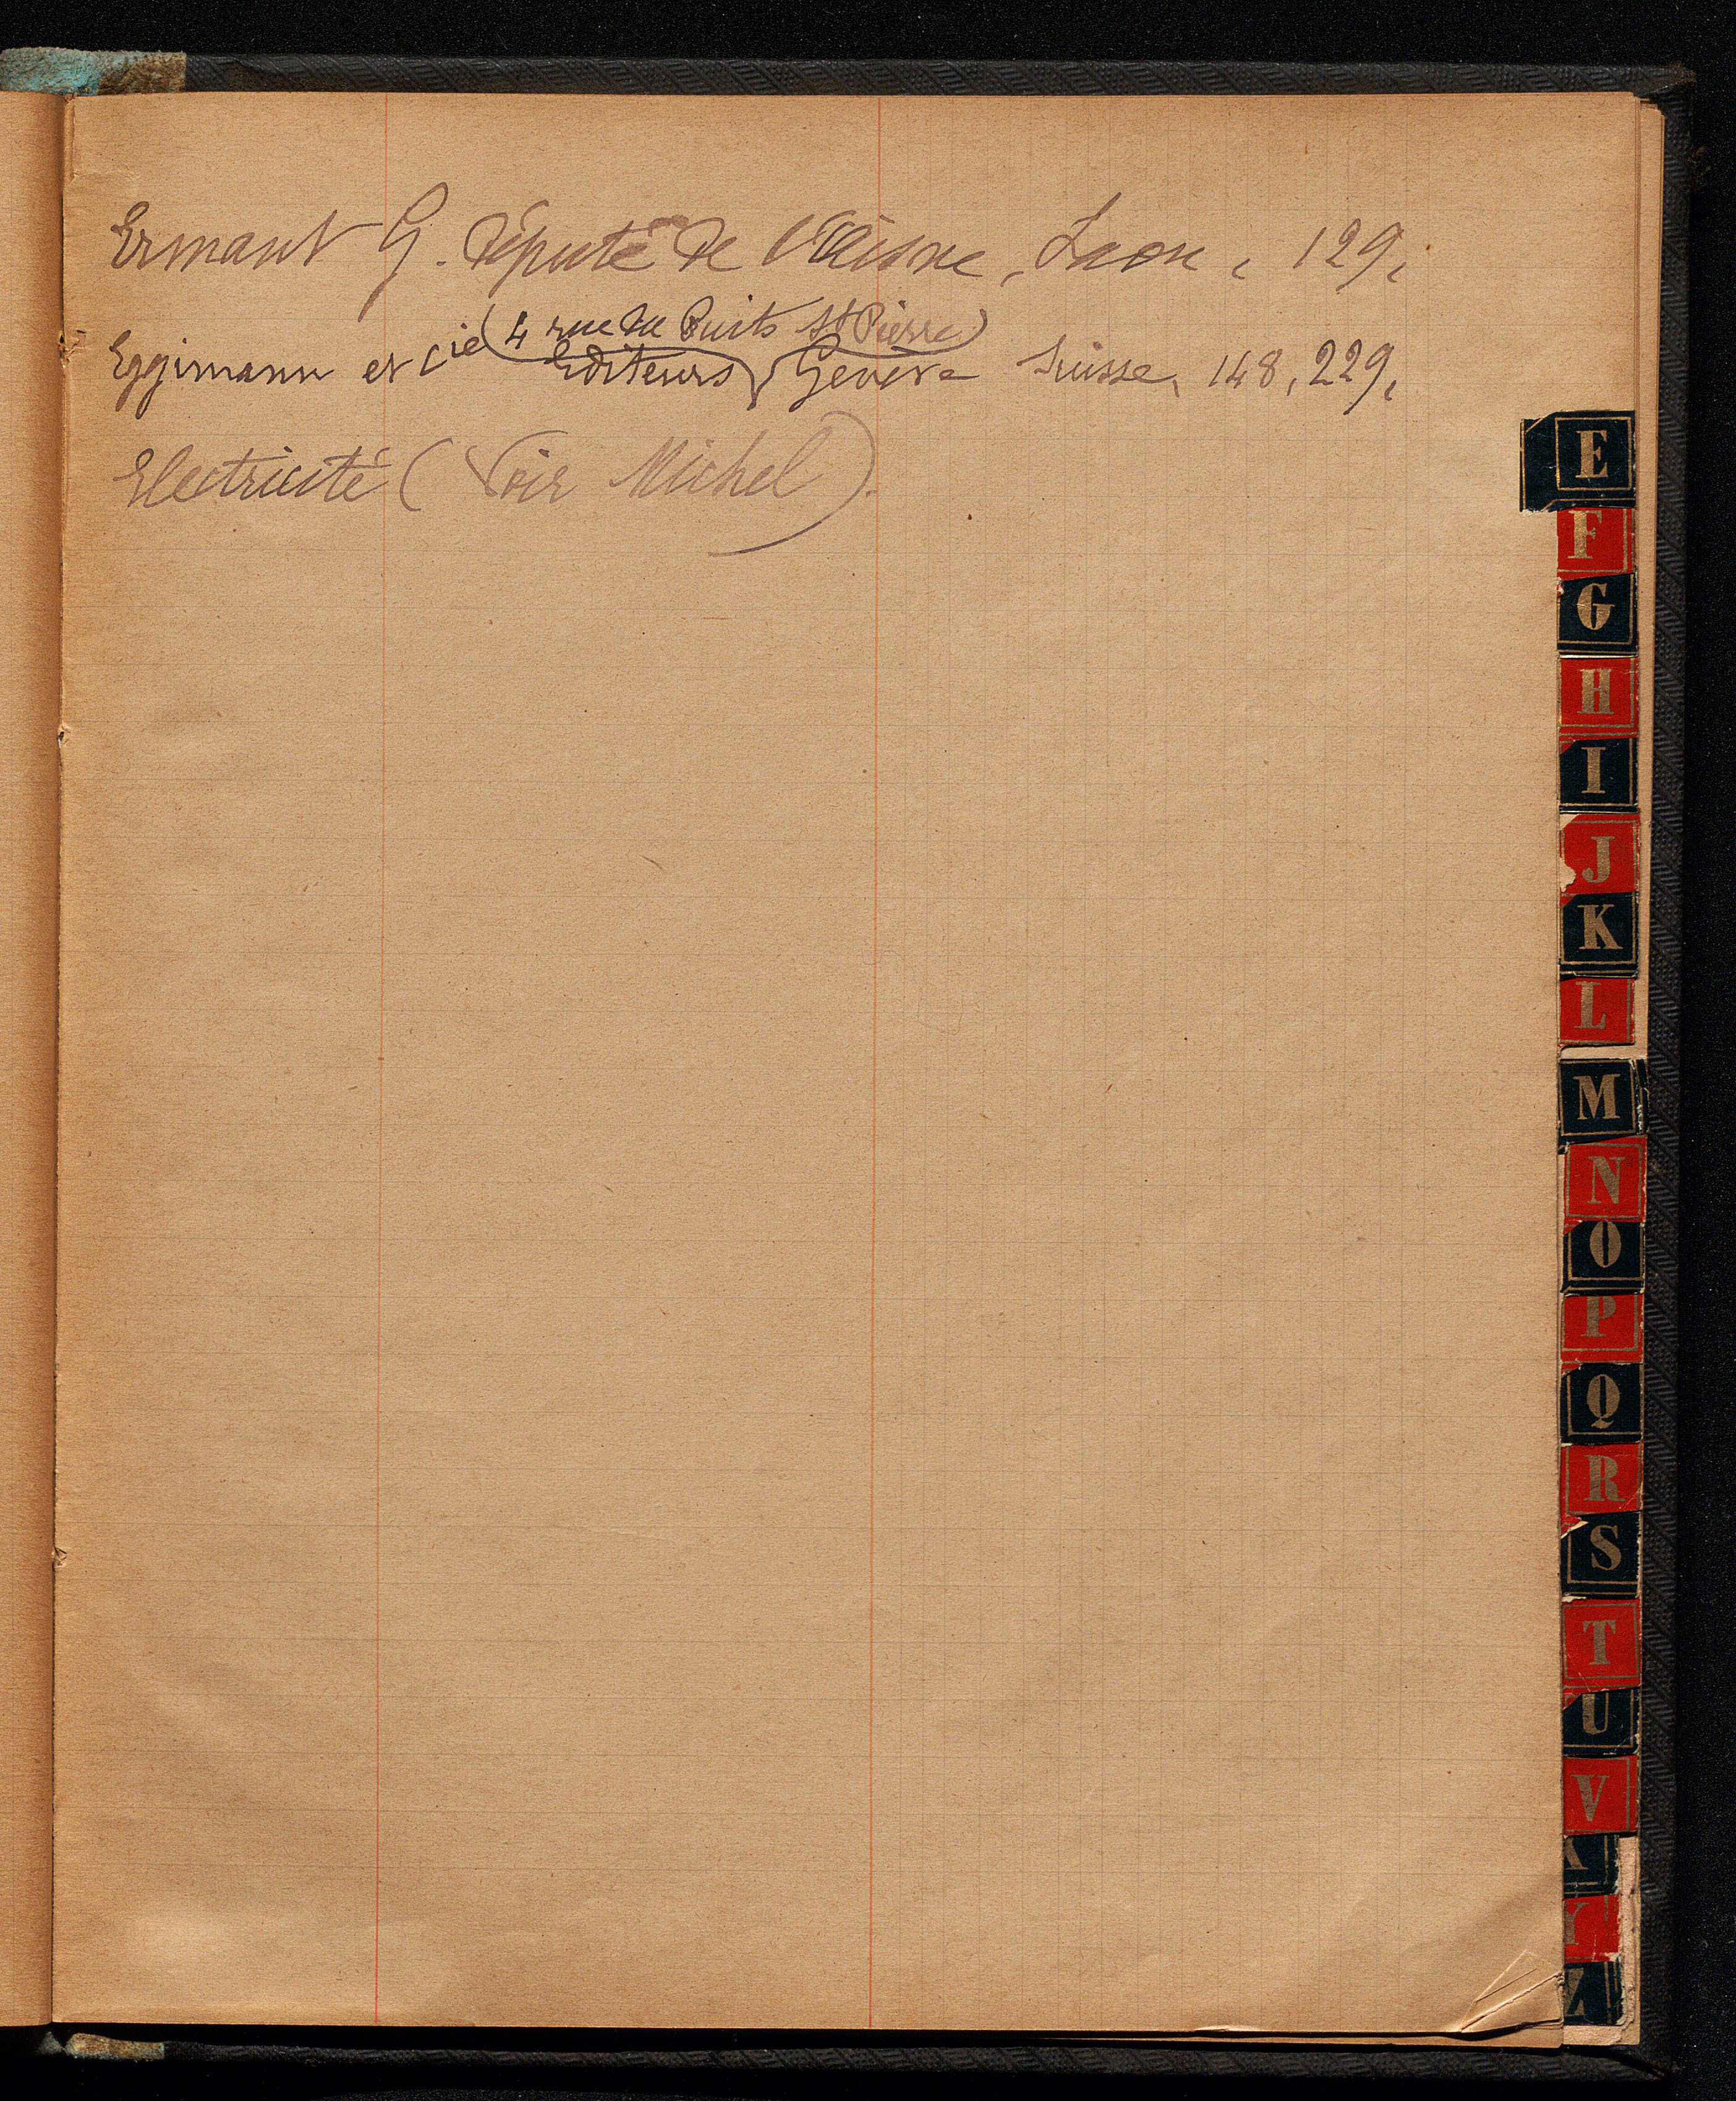 Ermant G. député de l'Aisne, Laon, 129,
(4 rue du Puits St Pierre)
Eggimann et Cie Editeurs, Genève Suisse, 148, 229,
Electricité (Voir Michel).
E
F
G
H
I
J
K
L
M
N
O
P
Q
R
S
T
U
V
Y
Z